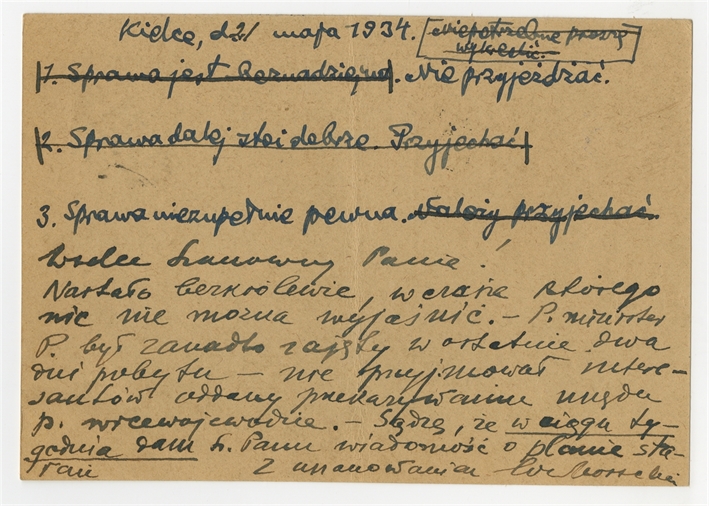 Kielce, d. 21 maja 1934. Niepotrzebne proszę
wykreślić.
1. Sprawa jest beznadziejna. Nie przyjeżdżać.
2. Sprawa dalej stoi dobrze. Przyjechać.
3. Sprawa niezupełnie pewna. Należy przyjechać.
Wielce Szanowny Panie!
Nastało bezkrólewie, w czasie którego
nic nie można wyjaśnić. – P. minister
P. był zanadto zajęty w ostatnie dwa
dni pobytu – nie przyjmował intere-
santów oddany przekazywaniu urzędu
p. wicewojewodzie. – Sądzę, że w ciągu ty-
godnia dam Sz. Panu wiadomość o planie sta-
rań Z uszanowaniem